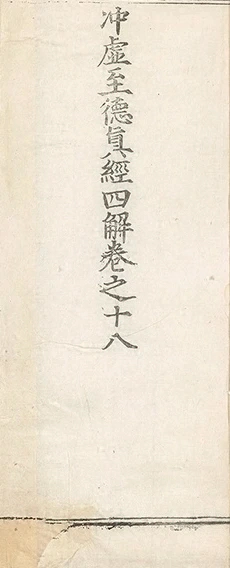 冲虛至德眞經四解卷之十八